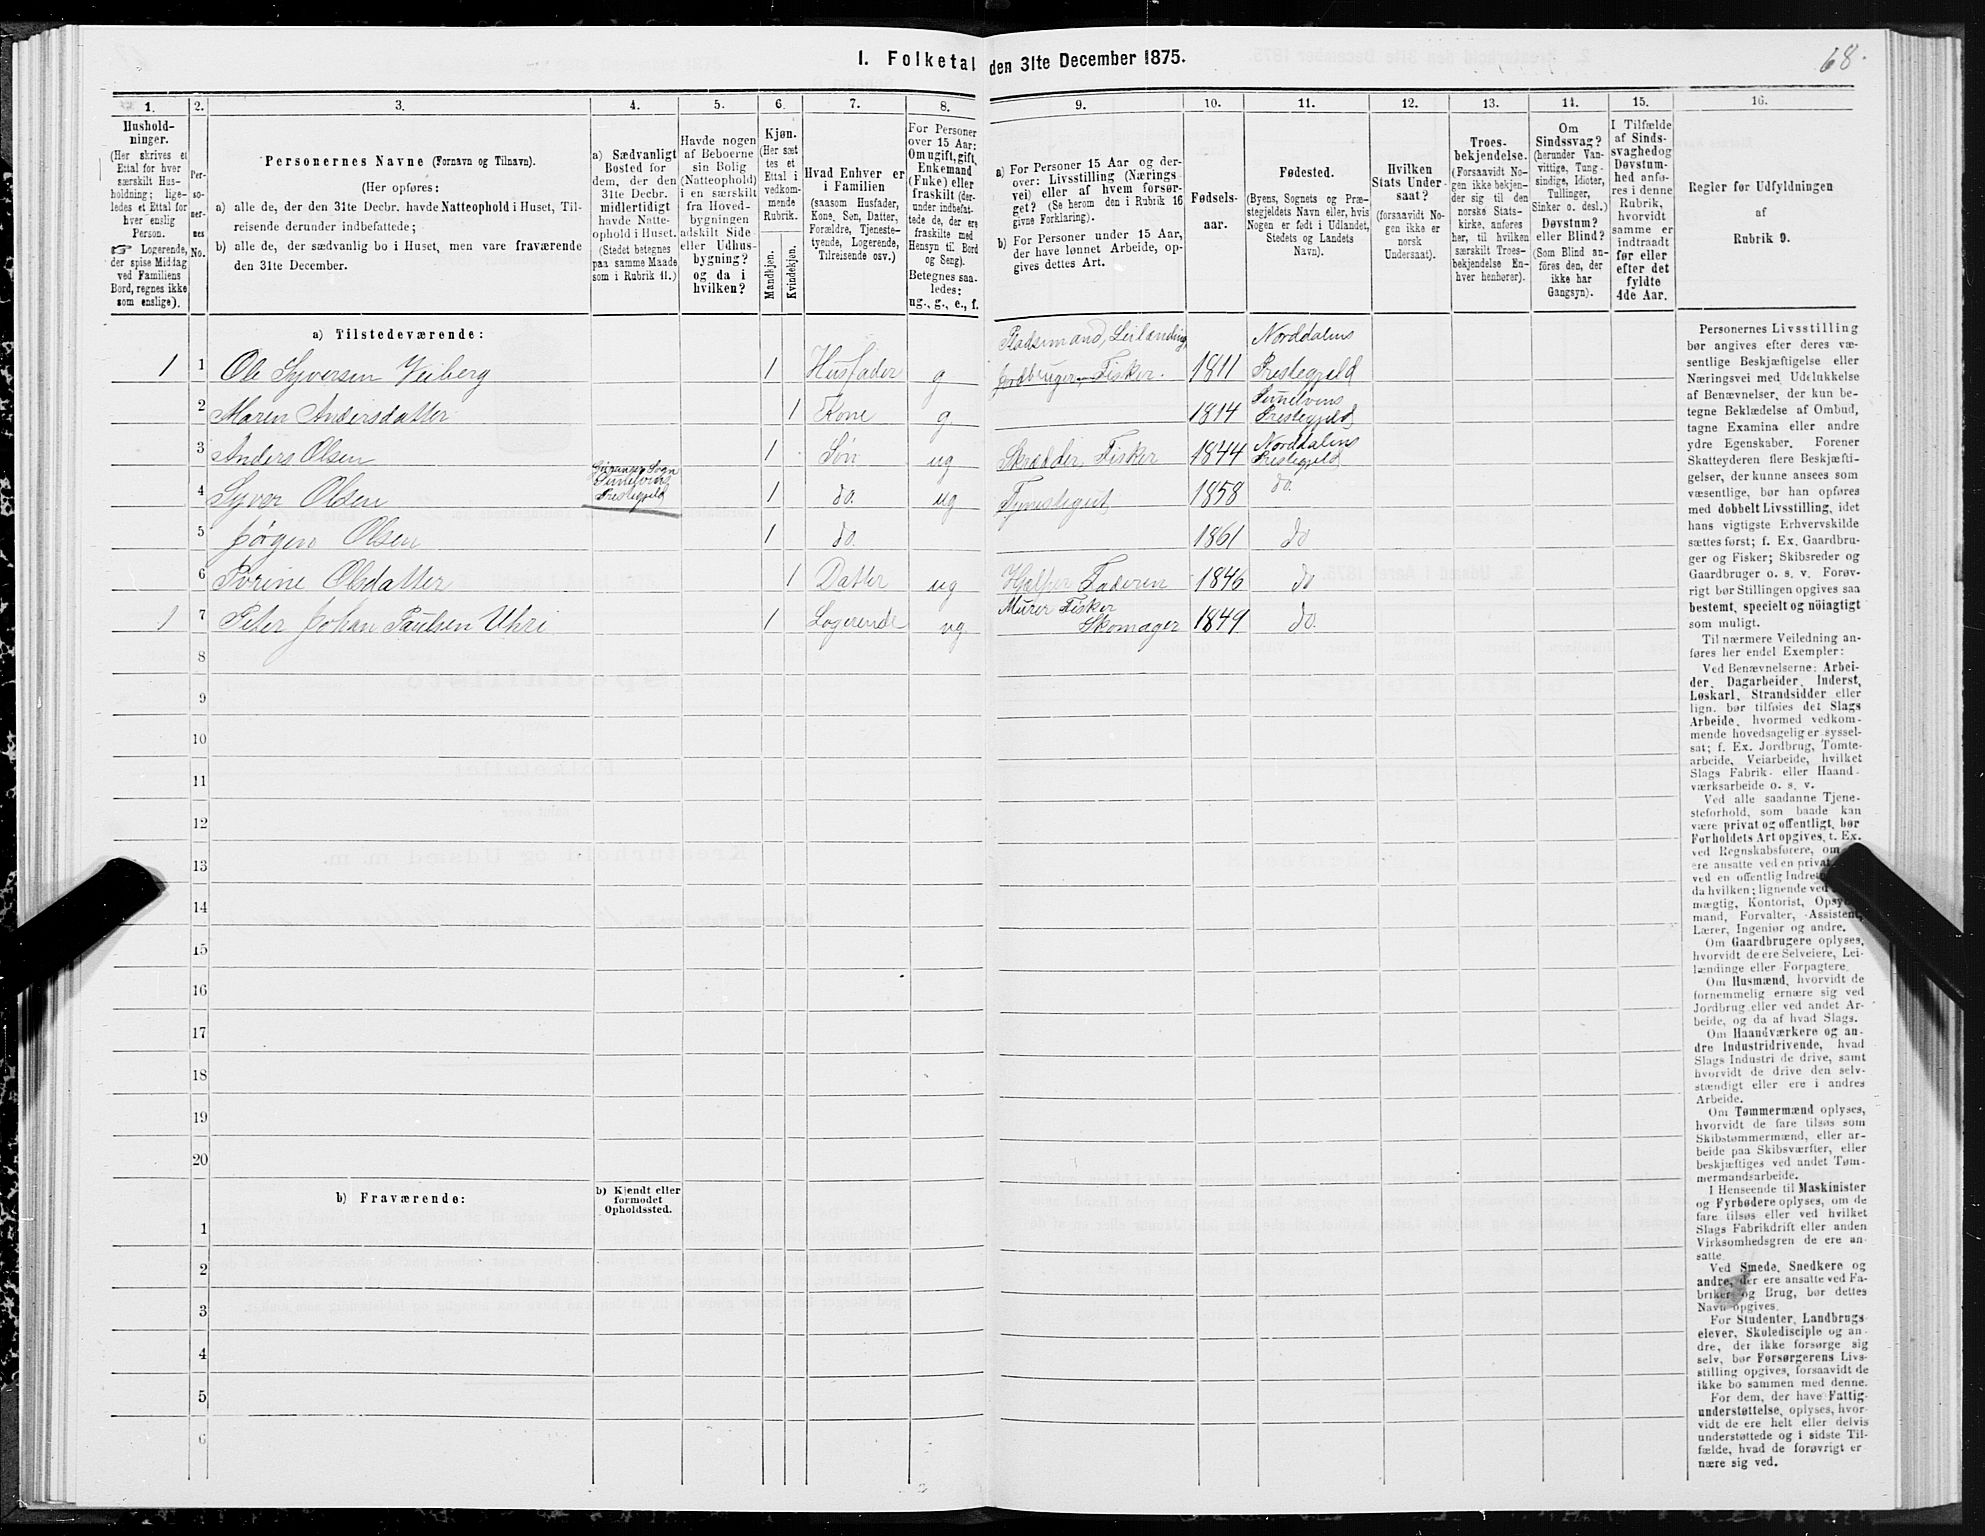 I. Folketal den 31te December 1875.
68.
1.
2.
3.
4.
5.
6.
7.
8.
9.
10.
11.
12.
13.
14.
15.
16.
Hushold-
ninger.
(Her skrives et
Ettal for hver
særskilt Hus-
holdning; lige-
ledes et Ettal for
hver enslig
Person.
☞ Logerende,
der spise Middag
ved Familiens
Bord, regnes ikke
som enslige).
Per-
so-
ner-
nes
No.
Personernes Navne (Fornavn og Tilnavn).
(Her opføres:
a) alle de, der den 31te Decbr. havde Natteophold i Huset, Til-
reisende derunder indbefattede;
b) alle de, der sædvanlig bo i Huset, men vare fraværende
den 31te December.
a) Sædvanligt
Bosted for
dem, der den
31te Decbr.
midlertidigt
havde Natte-
ophold i Huset.
(Stedet betegnes
paa samme Maade
som i Rubrik 11.)
Havde nogen
af Beboerne
sin Bolig
(Natteophold)
i en særskilt
fra Hoved-
bygningen
adskilt Side-
eller Udhus-
bygning?
og da i
hvilken?
Kjøn.
(Her sæt-
tes et
Ettal i
vedkom-
mende
Rubrik.
Mandkjøn.
Kvindekjøn.
Hvad Enhver er
i Familien
(saasom Husfader,
Kone, Søn, Datter,
Forældre, Tjeneste-
tyende, Logerende,
Tilreisende osv.)
For Personer
over 15 Aar:
Om ugift, gift,
Enkemand
(Enke) eller
fraskilt (der-
under indbefat-
tede de, der ere
fraskilte med
Hensyn til Bord
og Seng).
Betegnes saa-
ledes:
ug., g., e., f.
a) For Personer 15 Aar og der-
over: Livsstilling (Nærings-
vei) eller af hvem forsør-
get? (Se herom den i Rubrik 16
givne Forklaring).
b) For Personer under 15 Aar,
der have lønnet Arbeide, op-
gives dettes Art.
Fødsels-
aar.
Fødested.
(Byens, Sognets og Præ-
stegjeldets Navn eller, hvis
Nogen er født i Udlandet,
Stedets og Landets
Navn).
Hvilken
Stats Under-
saat?
(forsaavidt No-
gen ikke er
norsk
Undersaat).
Troes-
bekjendelse.
(Forsaavidt No-
gen ikke bekjen-
der sig til den
norske Stats-
kirke, anføres
her, til hvilken
særskilt Troes-
bekjendelse En-
hver henhører).
Om
Sindssvag?
(herunder Van-
vittige, Tung-
sindige, Idioter,
Tullinger,
Sinker o. desl.)
Døvstum?
eller Blind?
(Som Blind an-
føres den, der
ikke har
Gangsyn).
I Tilfælde
af Sinds-
svaghed og
Døvstum-
hed anfø-
res i denne
Rubrik,
hvorvidt
samme er
indtraadt
før eller
efter det
fyldte
4de Aar.
Regler for Udfyldningen
af
Rubrik 9.
a) Tilstedeværende:
1 1 Ole Syversen Veiberg 1 Husfader g Pladsemand, Leilænding, Jordbruger, Fisker. 1811 Norddalens Prestegjeld
2 Maren Andersdatter 1 Kone g. 1814 Sunelvens Prestegjeld
3 Anders Olsen 1 Søn ug Skrædder, Fisker 1844 Norddalens Prestegjeld
4 Syver Olsen Geiranger Sogn Sunelvens Prestegjeld 1 do. ug Tjenestegut 1858 do.
5 Jørgen Olsen 1 do. 1861 do
6 Porine Olsdatter 1 Datter ug Hjælper Faderen 1846 do
1 7 Peter Johan Paulsen Uhri 1 Logerende ug Murer Fisker Skomager 1849 do.
8
9
10
11
12
13
14
15
16
17
18
19
20
b) Fraværende:
b) Kjendt eller
formodet
Opholdssted.
1
2
3
4
5
6
Personernes Livsstilling
bør angives efter deres væ-
sentlige Beskjæftigelse eller
Næringsvei med Udelukkelse
af Benævnelser, der kun be-
tegne Beklædelse af Ombud,
tagne Examina eller andre
ydre Egenskaber. Forener
Skatteyderen flere Beskjæfti-
gelser, der kunne ansees som
væsentlige, bør han opføres
med dobbelt Livsstilling, idet
hans vigtigste Erhvervskilde
sættes først; f. Ex. Gaardbru-
ger og Fisker; Skibsreder og
Gaardbruger o. s. v. Forøv-
rigt bør Stillingen opgives saa
bestemt, specielt og nöiagtigt
som muligt.
Til nærmere Veiledning an-
føres her endel Exempler:
Ved Benævnelserne: Arbei-
der, Dagarbeider, Inderst,
Løskarl, Strandsidder eller
lign. bør tilføies det Slags
Arbeide, hvormed vedkom-
mende hovedsagelig er syssel-
sat; f. Ex. Jordbrug, Tomte-
arbeide, Veiarbeide, hvilket
Slags Fabrik- eller Haand-
værksarbeide o. s. v.
Ved alle saadanne Tjene-
steforhold, som baade kan
være privat og offentligt, bør
Forholdets Art opgives, t. Ex.
ved Regnskabsførere, om
ere ansatte ved en privat
ved en offentlig Indret
da hvilken; lignende ved
mægtig, Kontorist, Opsy
mand, Forvalter, Assistent,
Lærer, Ingeniør og andre.
Om Gaardbrugere oplyses,
hvorvidt de ere Selveiere, Lei-
lændinge eller Forpagtere.
Om Husmænd, hvorvidt de
fornemmelig ernære sig ved
Jordbrug eller ved andet Ar-
beide, og da af hvad Slags.
Om Haandværkere og an-
dre Industridrivende, hvad
Slags Industri de drive, samt
hvorvidt de drive den selv-
stændigt eller ere i andres
Arbeide.
Om Tømmermænd oplyses,
hvorvidt de fare tilsøs som
Skibstømmermænd, eller ar-
beide paa Skibsværfter, eller
beskjæftiges ved andet Tøm-
mermandsarbeide.
I Henseende til Maskinister
og Fyrbødere oplyses, om de
fare tilsøs eller ved hvilket
Slags Fabrikdrift eller anden
Virksomhedsgren de ere an-
satte.
Ved Smede, Snedkere og
andre, der ere ansatte ved Fa-
briker og Brug, bør dettes
Navn opgives.
For Studenter, Landbrugs-
elever, Skoledisciple og an-
dre, der ikke forsørge sig
selv, bør Forsørgerens Livs-
stilling opgives, forsaavidt de
ikke bo sammen med denne.
For dem, der have Fattig-
understøttelse, oplyses, hvor-
vidt de ere helt eller delvis
understøttede og i sidste Til-
fælde, hvad de forøvrigt er-
nære sig ved.